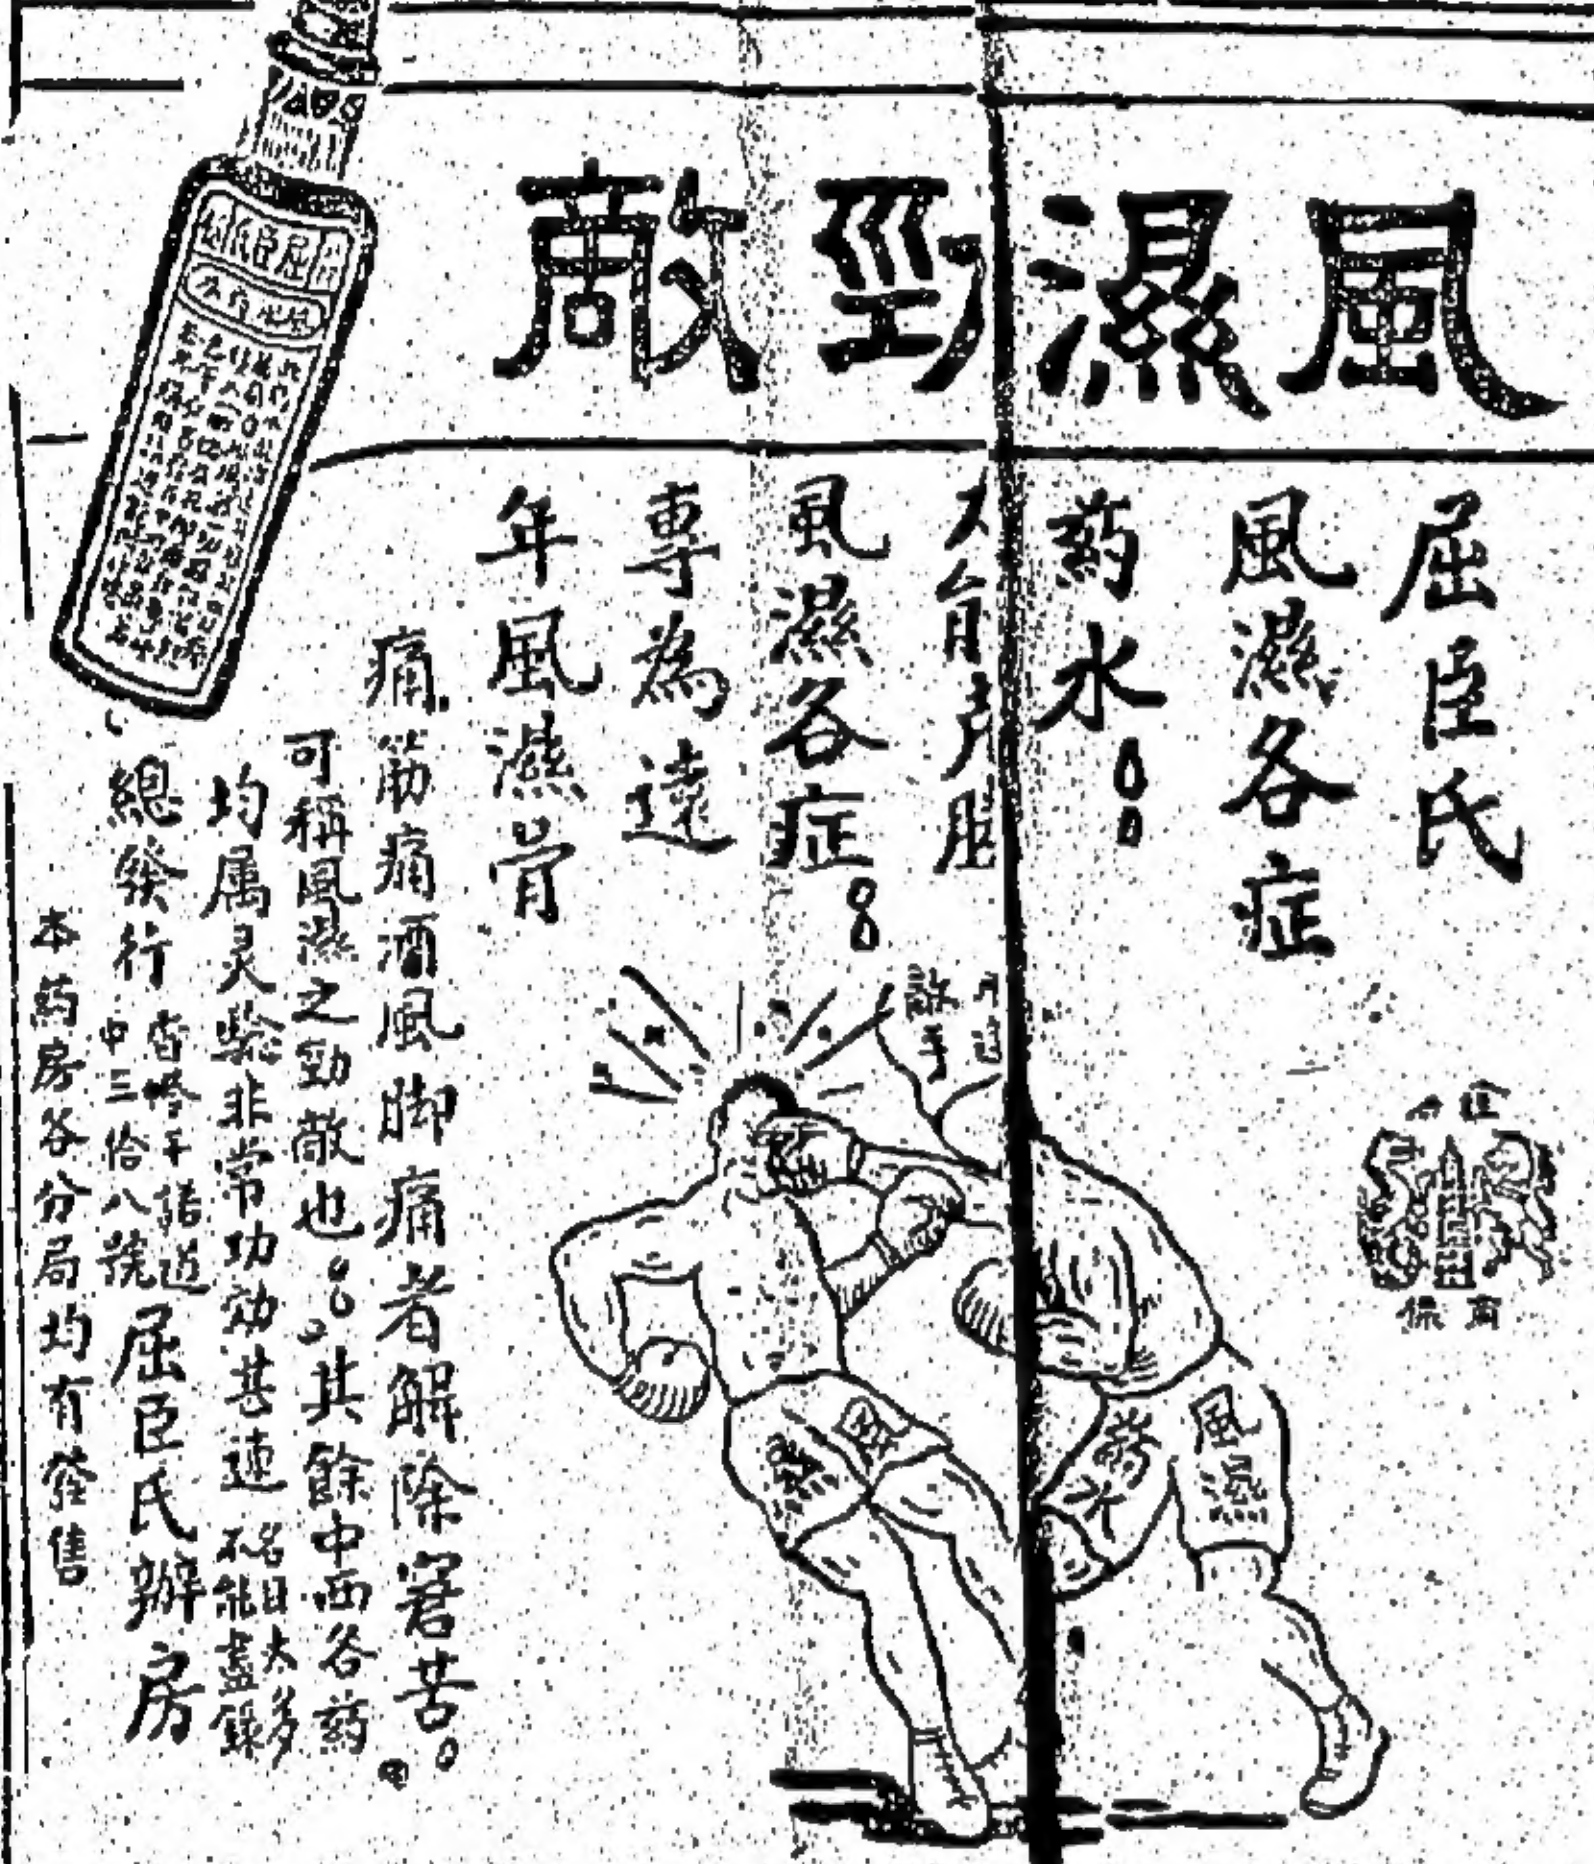 風濕勁敵
屈臣氏
風濕各症
藥水
風濕各症
專為遠
年風濕骨
痛筋痛酒風脚痛者解除窘苦。
可稱風濕之勁敵也。其餘中西各药
均属灵驗非常功効甚速
名目太多
不能盡錄
總發行
香港干諾道
中三拾八號
屈臣氏辦房
本药房各分局均有發售
敵手
風濕
藥水